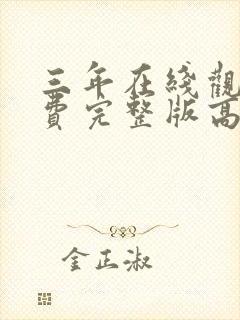 三年在綫觀
費完整版高
金正淑